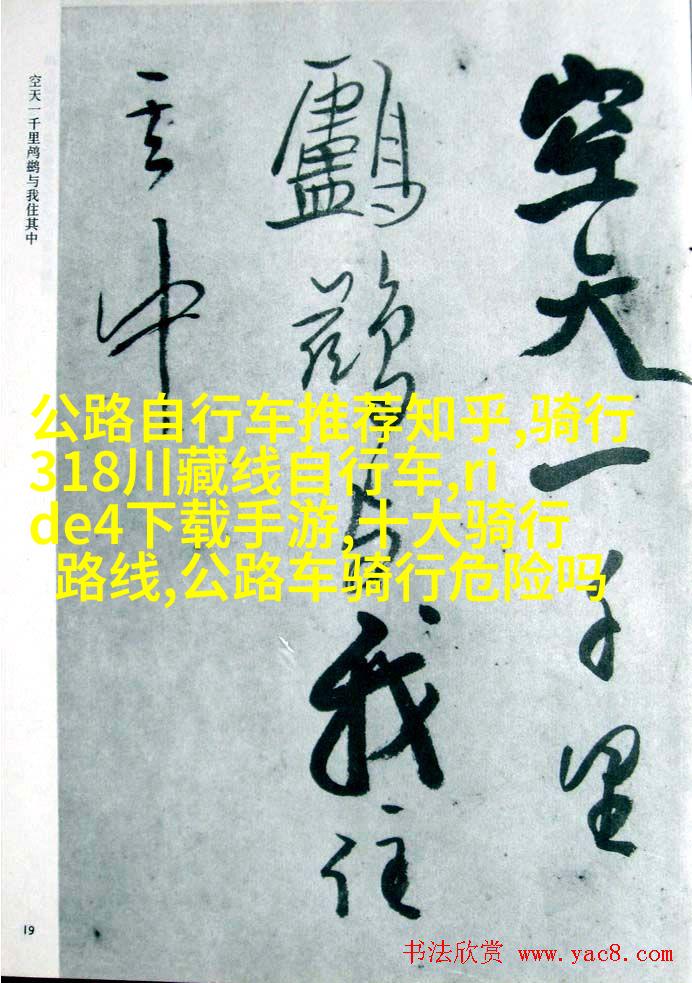 空天一千里
鸬鹚与我住
其中
空天一千里鸬鹚与我住其中
公路自行车推荐知乎,骑行
318川藏线自行车,ri
de4下载手游,十大骑行
路线,公路车骑行危险吗
19
书法欣赏 www.yac8.com